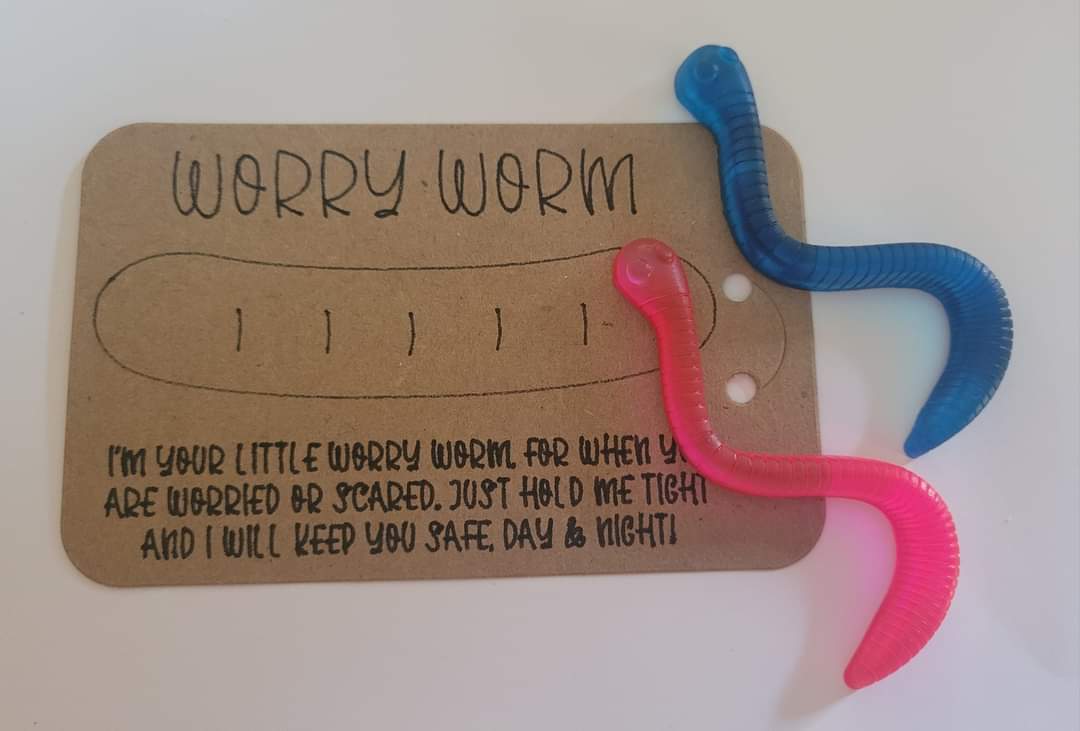 WORRY WORM
I'M YOUR LITTLE WORRY WORM. FOR WHEN
ARE WORRIED OR SCARED. JUST HOLD ME TIGHT
AND I WILL KEEP YOU SAFE, DAY & NIGHT!